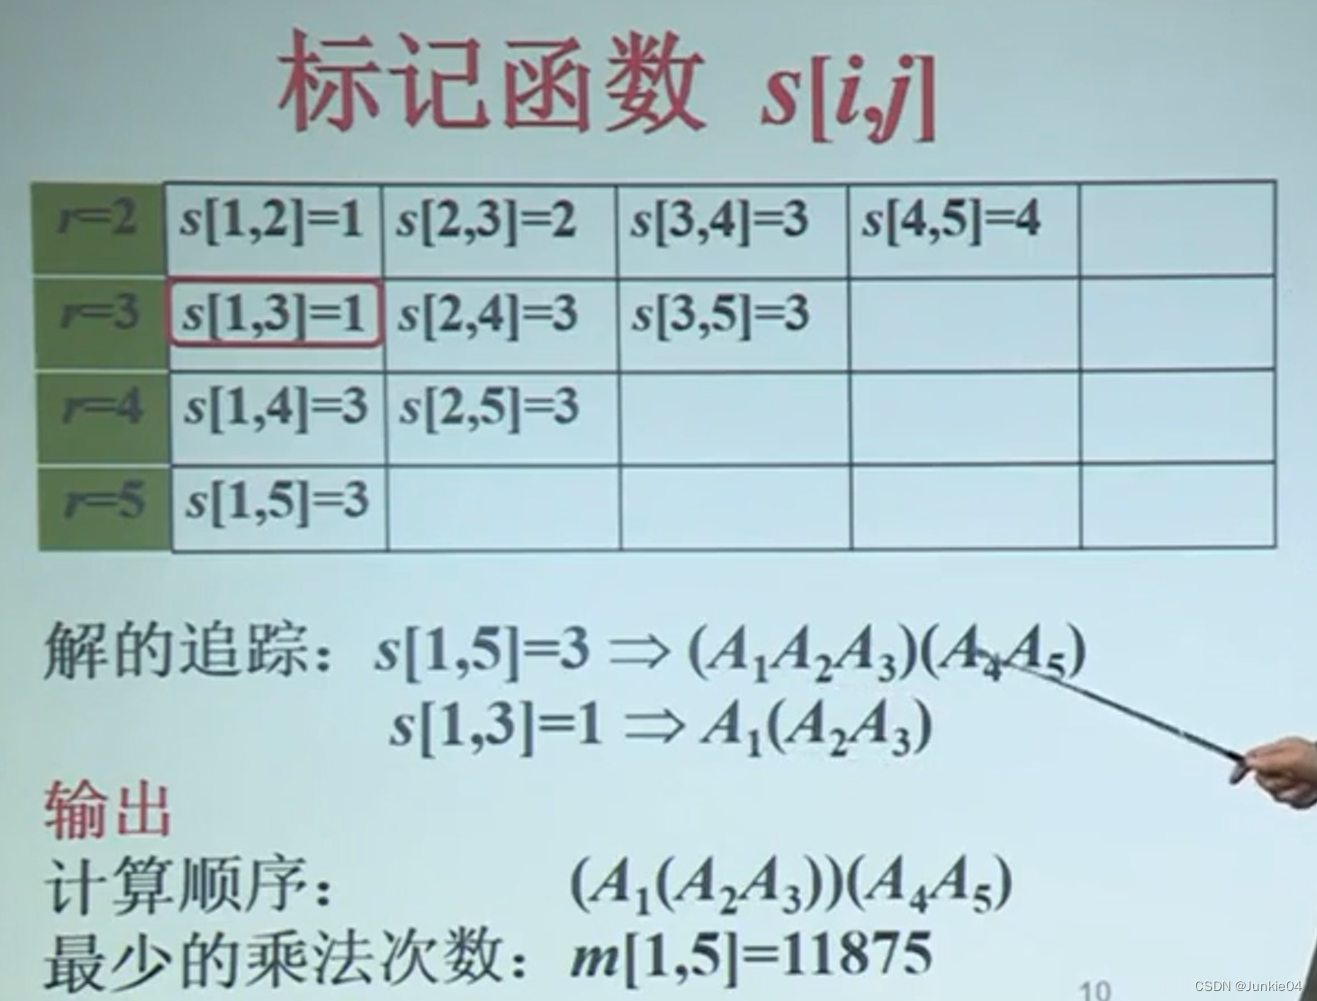 标记函数 s[i,j]
r=2 s[1,2]=1 s[2,3]=2 s[3,4]=3 s[4,5]=4
r=3 s[1,3]=1 s[2,4]=3 s[3,5]=3
r=4 s[1,4]=3 s[2,5]=3
r=5 s[1,5]=3
解的追踪：s[1,5]=3 ⇒ (A₁A₂A₃)(A₄A₅)
s[1,3]=1 ⇒ A₁(A₂A₃)
输出
计算顺序： (A₁(A₂A₃))(A₄A₅)
最少的乘法次数：m[1,5]=11875
10
CSDN @Junkie04